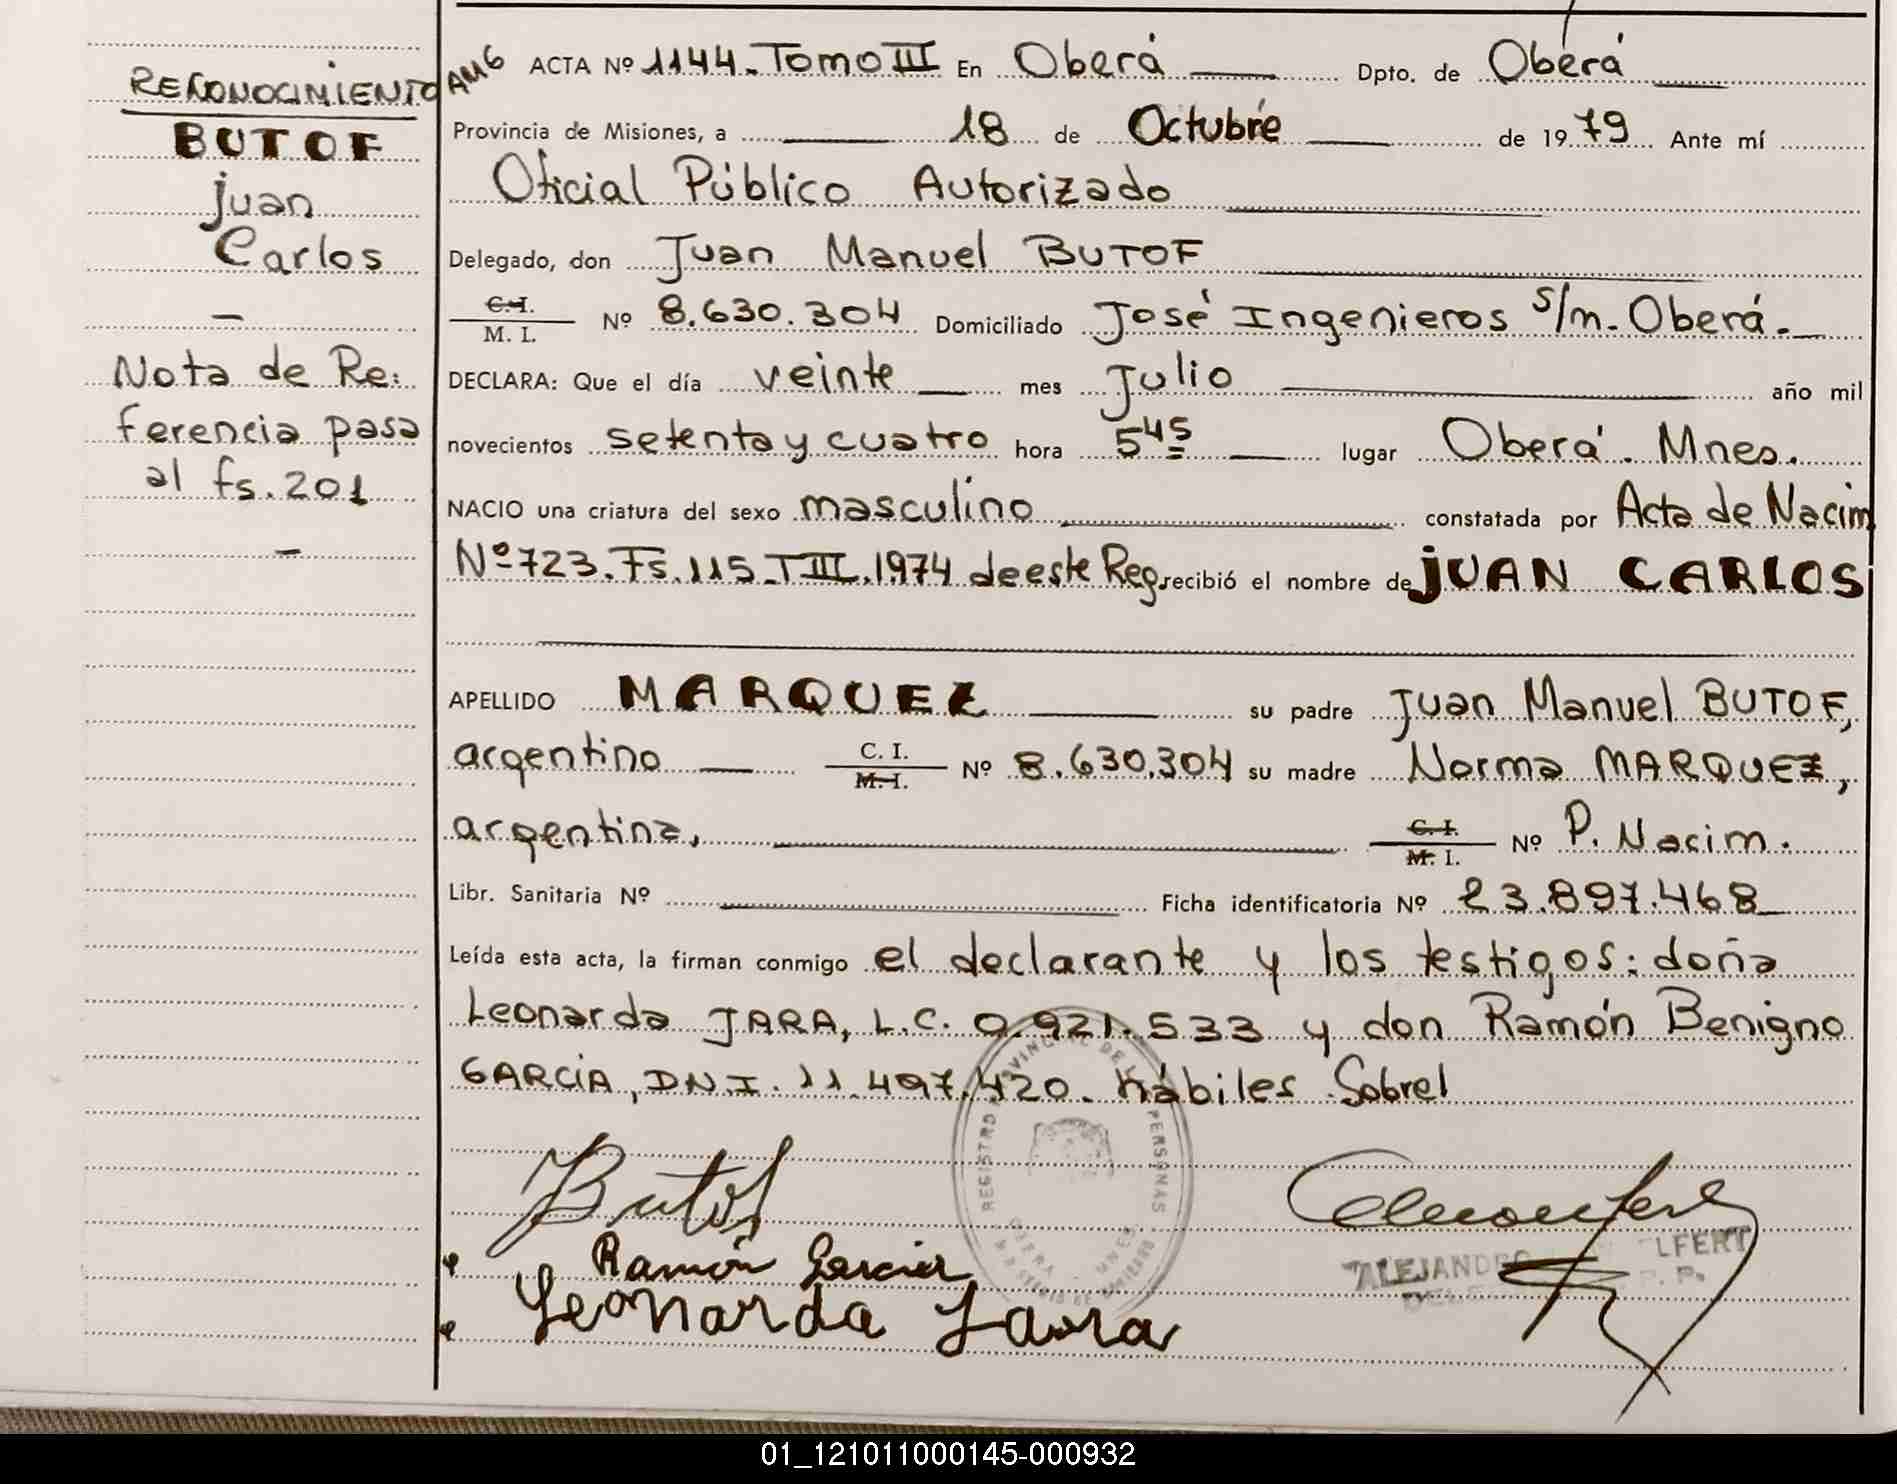 RECONOCIMIENTO
BUTOF
Juan
Carlos
Nota de Re:
ferencia pasa
al fs. 201
AMG
ACTA Nº 1144. Tomo III En Oberá Dpto. de Oberá
Provincia de Misiones, a 18 de Octubre de 1979 Ante mí
Oficial Público Autorizado
Delegado, don Juan Manuel BUTOF
C. I.
M. I. Nº 8.630.304 Domiciliado José Ingenieros s/n. Oberá.
DECLARA: Que el día veinte mes Julio año mil
novecientos setenta y cuatro hora 5 45 lugar Oberá. Mnes.
NACIO una criatura del sexo masculino constatada por Acta de Nacim
Nº 723. Fs. 115. T III. 1974 de este Reg. recibió el nombre de JUAN CARLOS
APELLIDO MARQUEZ su padre Juan Manuel BUTOF,
argentino C. I.
M. I. Nº 8.630.304 su madre Norma MARQUEZ,
argentina, C. I.
M. I. Nº P. Nacim.
Libr. Sanitaria Nº Ficha identificatoria Nº 23.897.468
Leída esta acta, la firman conmigo el declarante y los testigos: doña
Leonarda JARA, L.C. 0.921.533 y don Ramón Benigno
GARCIA, D.N.I. 11.497.420. hábiles
Butof
Ramón Garcia
Leonarda Jara
REGISTRO PROVINCIAL DE LAS PERSONAS
ALEJANDRO LFERT
01_121011000145-000932